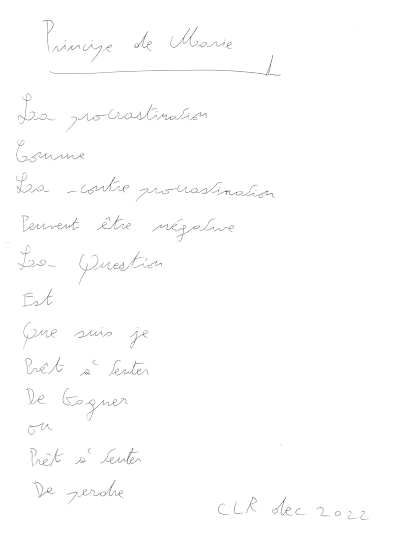 Principe de Marie
La procrastination
Comme
La contre procrastination
Peuvent être négative
La Question
Est
Que suis je
Prêt à tenter
De Gagner
ou
Prêt à tenter
De perdre
CLR dec 2022